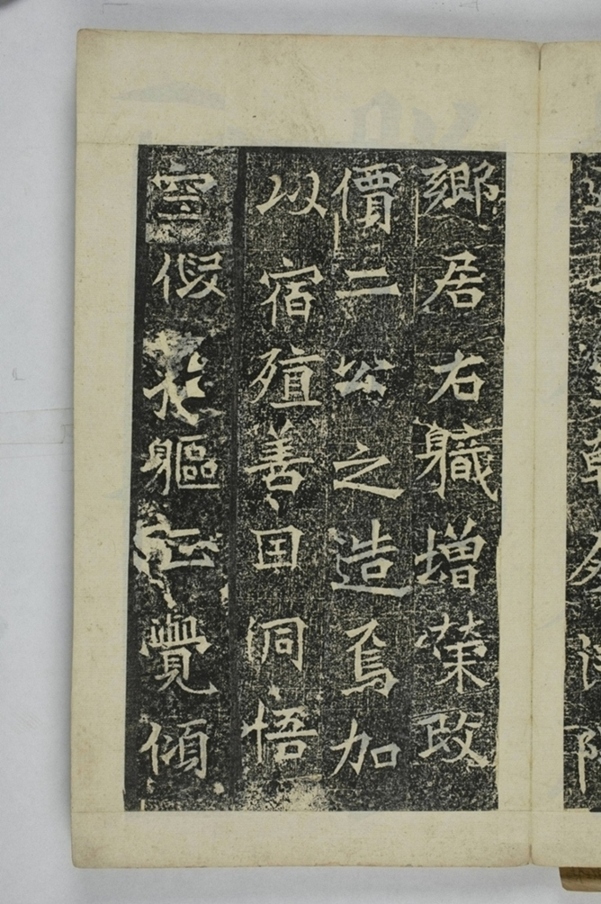 鄉居右軄增榮改
價二公之造焉加
以宿殖善因洞悟
空假軀正覺傾